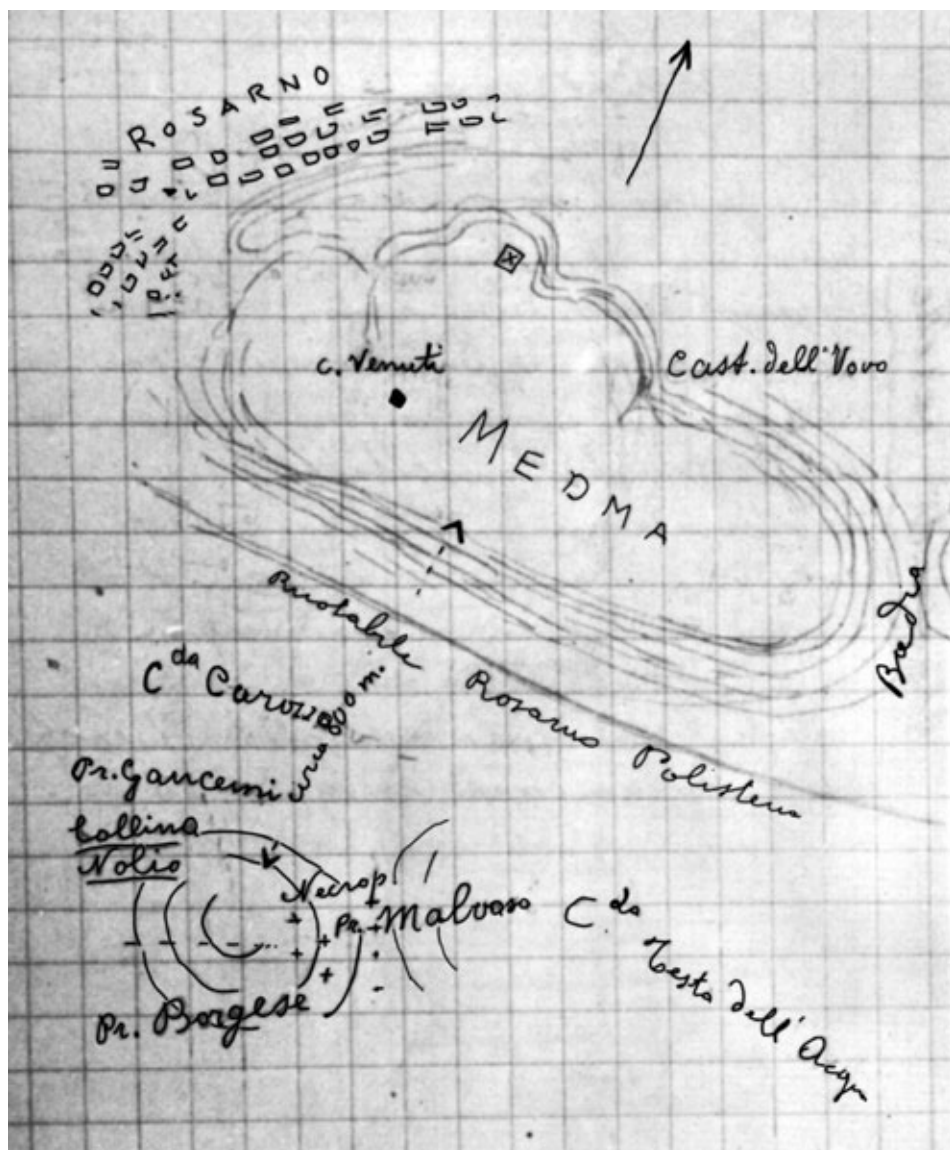 ROSARNO
C. Venuti
Cast. dell'Vovo
MEDMA
Badia
Ruotabile Rosarno Polistena
C.da Carozzo
circa 800 m.
Pr. Gangemi
Collina
Nolio
Necrop
Pr. Malvaso
C.da Testa dell'Acqua
Pr. Borgese